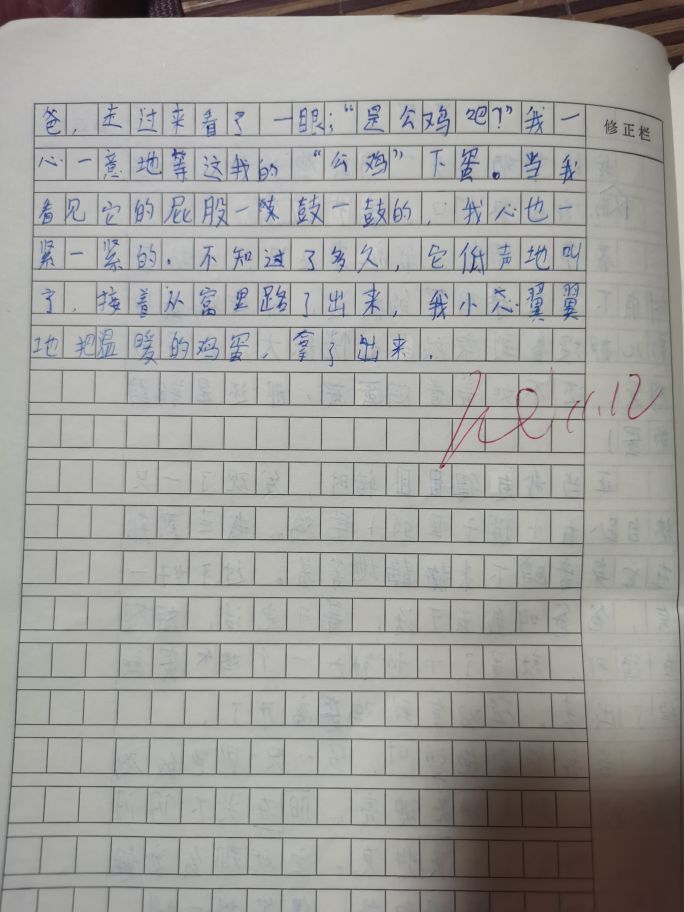 爸，走过来看了一眼；“是公鸡吧？”我一
修正栏
心一意地等这我的“公鸡”下蛋。当我
看见它的屁股一鼓一鼓的，我心也一
紧一紧的。不知过了多久，它低声地叫
了，接着从窝里踏了出来，我小心翼翼
地把温暖的鸡蛋，拿了出来．
11.12